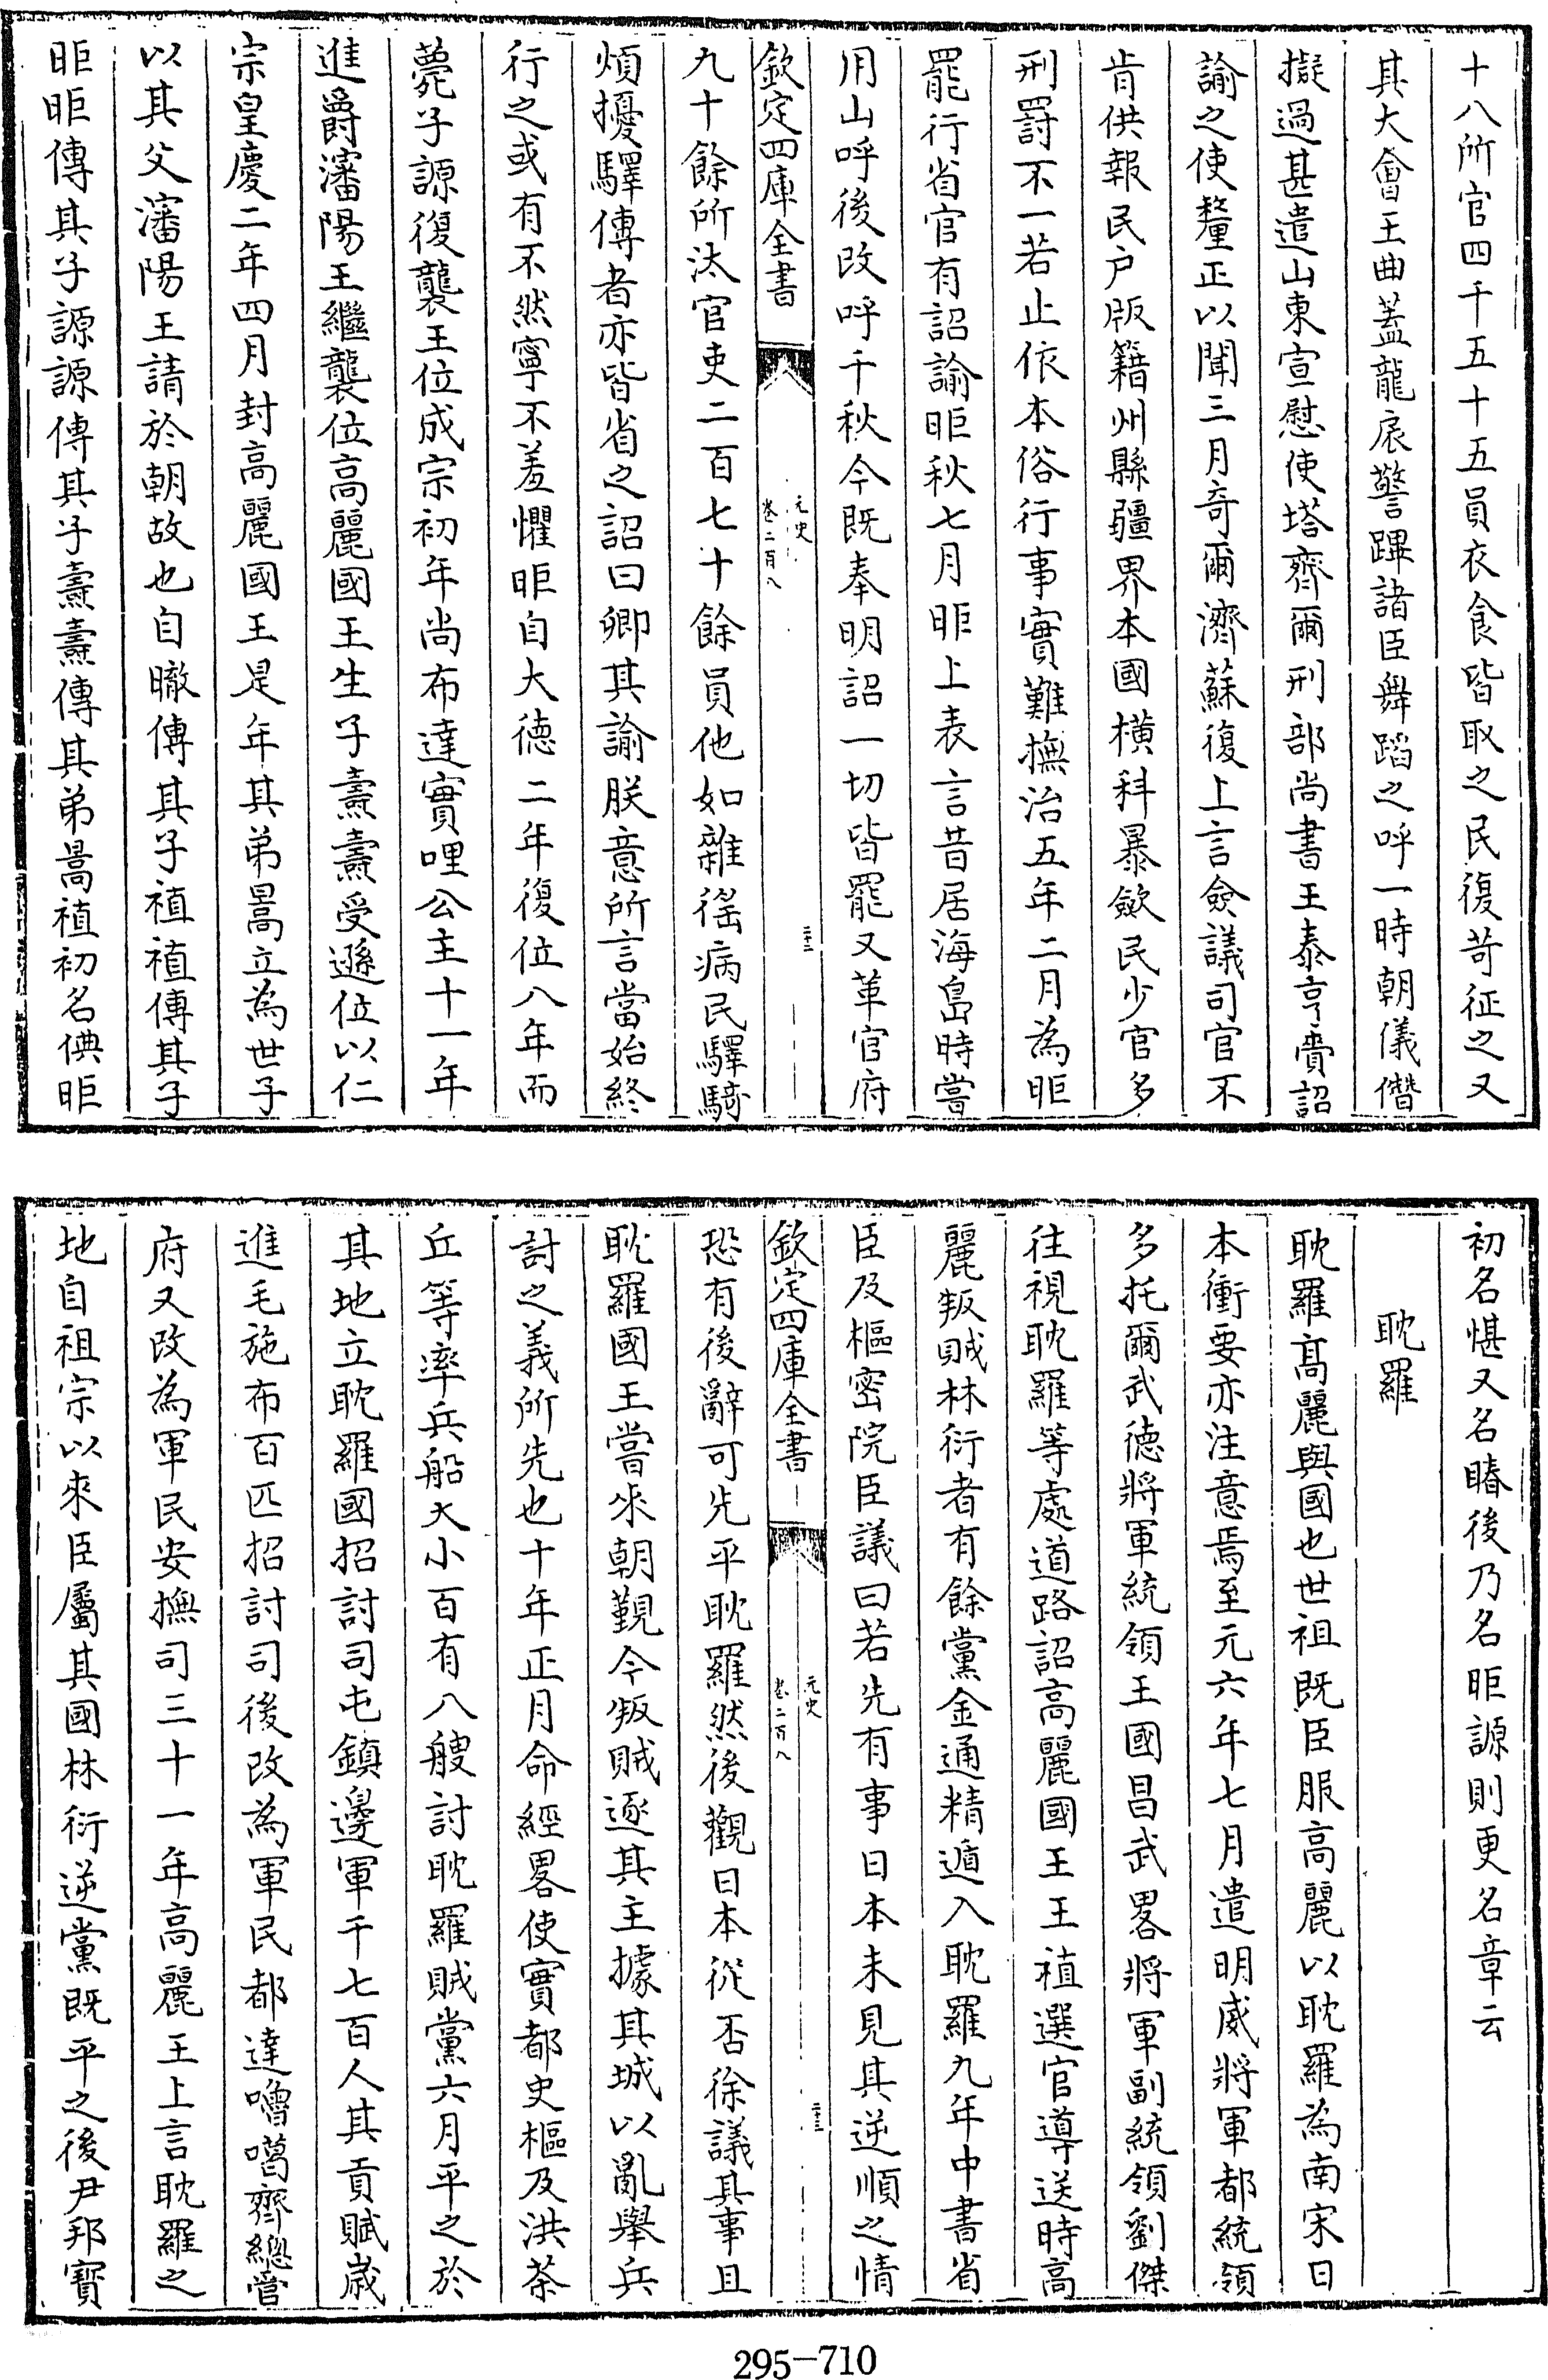 十八所官四千五十五員衣食皆取之民復苛征之又
其大會王曲蓋龍扆警蹕諸臣舞蹈之呼一時朝儀僭
擬過甚遣山東宣慰使塔齊爾刑部尚書王泰亨賫詔
諭之使釐正以聞三月奇爾濟蘇復上言僉議司官不
肯供報民户版籍州縣疆界本國横科暴斂民少官多
刑罰不一若止依本俗行事實難撫治五年二月為昛
罷行省官有詔諭昛秋七月昛上表言昔居海島時嘗
用山呼後改呼千秋今既奉明詔一切皆罷又革官府
欽定四庫全書
元史
卷二百八
二十二
九十餘所汰官吏二百七十餘員他如雜徭病民驛騎
煩擾驛傳者亦皆省之詔曰卿其諭朕意所言當始終
行之或有不然寧不羞懼昛自大德二年復位八年而
薨子謜復襲王位成宗初年尚布達實哩公主十一年
進爵瀋陽王繼襲位高麗國王生子燾燾受遜位以仁
宗皇慶二年四月封高麗國王是年其弟暠立為世子
以其父瀋陽王請於朝故也自㬚傳其子禃禃傳其子
昛昛傳其子謜謜傳其子燾燾傳其弟暠禃初名倎昛
初名愖又名賰後乃名昛謜則更名章云
耽羅
耽羅髙麗與國也世祖既臣服高麗以耽羅為南宋日
本衝要亦注意焉至元六年七月遣明威將軍都統領
多托爾武德將軍統領王國昌武畧將軍副統領劉傑
往視耽羅等處道路詔高麗國王王禃選官導送時高
麗叛賊林衍者有餘黨金通精遁入耽羅九年中書省
臣及樞密院臣議曰若先有事日本未見其逆順之情
欽定四庫全書
元史
卷二百八
二十三
恐有後辭可先平耽羅然後觀日本從否徐議其事且
耽羅國王嘗來朝覲今叛賊逐其主據其城以亂舉兵
討之義所先也十年正月命經畧使實都史樞及洪茶
丘等率兵船大小百有八艘討耽羅賊黨六月平之於
其地立耽羅國招討司屯鎮邊軍千七百人其貢賦歲
進毛施布百匹招討司後改為軍民都達嚕噶齊總管
府又改為軍民安撫司三十一年高麗王上言耽羅之
地自祖宗以來臣屬其國林衍逆黨既平之後尹邦寳
295-710